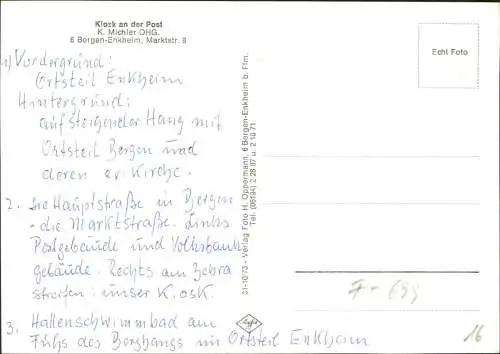 Kiosk an der Post
K. Michler OHG.
6 Bergen-Enkheim, Marktstr. 8
1) Vordergrund:
Ortsteil Enkheim
Hintergrund:
aufsteigender Hang mit
Ortsteil Bergen und
deren ev Kirche.
2. Die Hauptstraße in Bergen
- die Marktstraße. Links
Postgebäude und Volksbank
gebäude. Rechts am Zebra
streifen: unser K.osk.
3. Hallenschwimmbad am
Fuße des Berghangs im Ortsteil Enkheim
31-10/73 - Verlag Foto H. Oppermann, 6 Bergen-Enkheim b. Ffm.
Tel. (06194) 2 28 67 u. 2 10 71
Agfa
Echt Foto
F-699
16